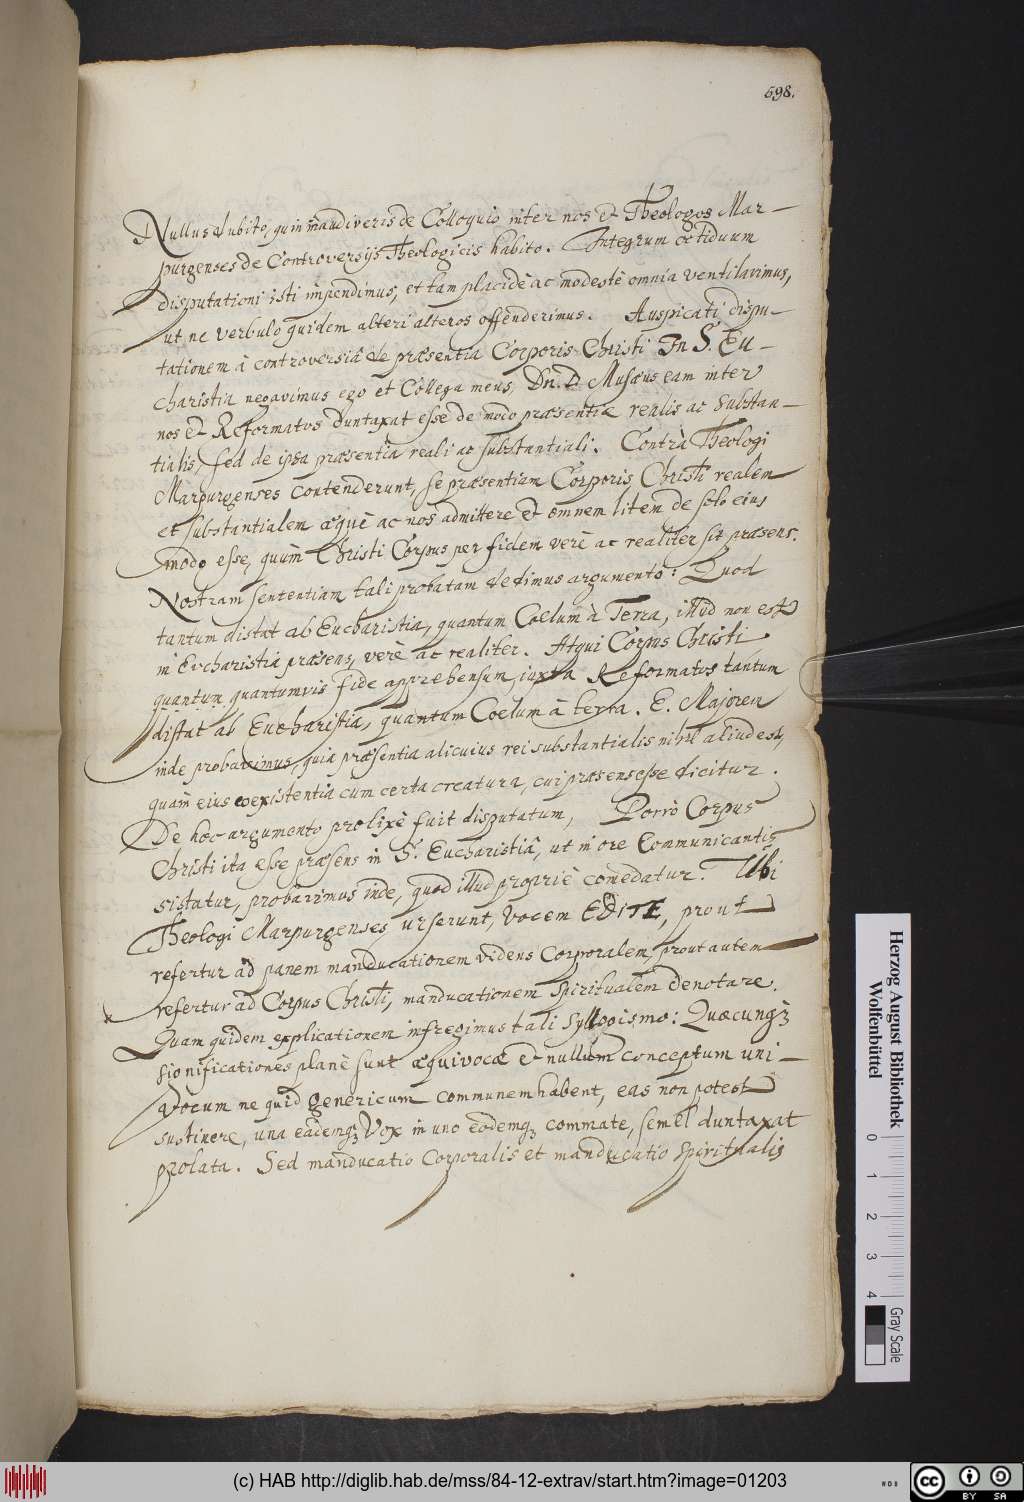 698.
Nullus dubito, quin inaudiveris de Colloquio inter nos et Theologos Mar-
purgenses de Controversijs Theologicis habito. Integrum octiduum
disputationi isti impendimus, et tam placidè ac modestè omnia ventilavimus,
ut ne verbulo quidem alteri alteros offenderimus. Auspicati dispu-
tationem à controversiâ de præsentia Corporis Christi In S. Eu-
charistia negavimus ego et Collega meus, Dn. D. Musæus eam inter
nos et Reformatos duntaxat esse de modo præsentiæ realis ac substan-
tialis, sed de ipsa præsentia reali ac substantiali. Contrà Theologi
Marpurgenses contenderunt, se præsentiam Corporis Christi realem
et substantialem æquè ac nos admittere et omnem litem de solo eius
modo esse, quùm Christi Corpus per fidem verè ac realiter sit præsens.
Nostram sententiam tali probatam dedimus argumento: Quod
tantum distat ab Eucharistia, quantum Coelum à Terra, illud non est
in Eucharistia præsens, verè ac realiter. Atqui Corpus Christi
quantum quantumvis fide apprehensum, iuxta Reformatos tantum
distat ab Eucharistia, quantum Coelum à terra. E. Majorem
inde probavimus, quia præsentia alicuius rei substantialis nihil aliud est,
quàm eius coexistentia cum certa creatura, cui præsens esse dicitur.
De hoc argumento prolixè fuit disputatum, Porrò Corpus
Christi ita esse præsens in S. Eucharistiâ, ut in ore Communicantis
sistatur, probavimus inde, quod illud propriè comedatur. Ubi
Theologi Marpurgenses urserunt, vocem EDITE, prout
refertur ad panem manducationem videns Corporalem, prout autem
refertur ad Corpus Christi, manducationem spiritualem denotare.
Quam quidem explicationem infregimus tali syllogismo: Quæcunqȝ
significationes planè sunt æquivocæ et nullum conceptum uni-
vocum ne quid genericum communem habent, eas non potest
sustinere, una eademqȝ Vox in uno eodemqȝ commate, semel duntaxat
prolata. Sed manducatio Corporalis et manducatio spiritualis
Herzog August Bibliothek
Wolfenbüttel
0 1 2 3 4
Gray Scale
(c) HAB http://diglib.hab.de/mss/84-12-extrav/start.htm?image=01203
cc BY SA